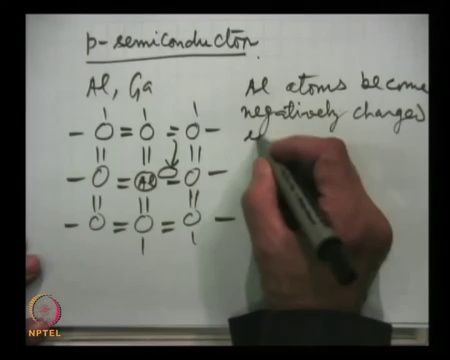 p-semiconductor.
Al, Ga
Al atoms become
negatively charged
Al
NPTEL